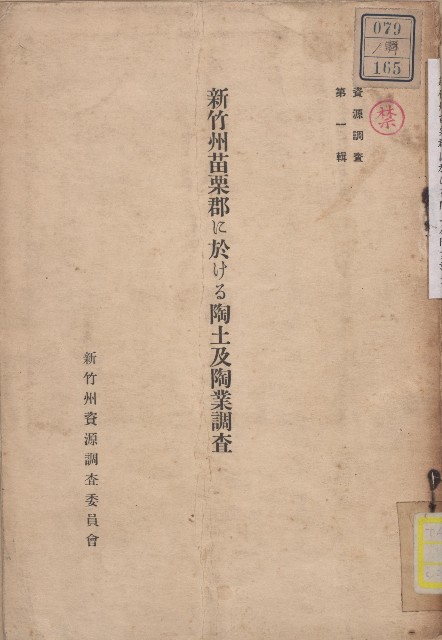 079
165
禁
資源調査
第一輯
新竹州苗栗郡に於ける陶土及陶業調査
新竹州資源調査委員會